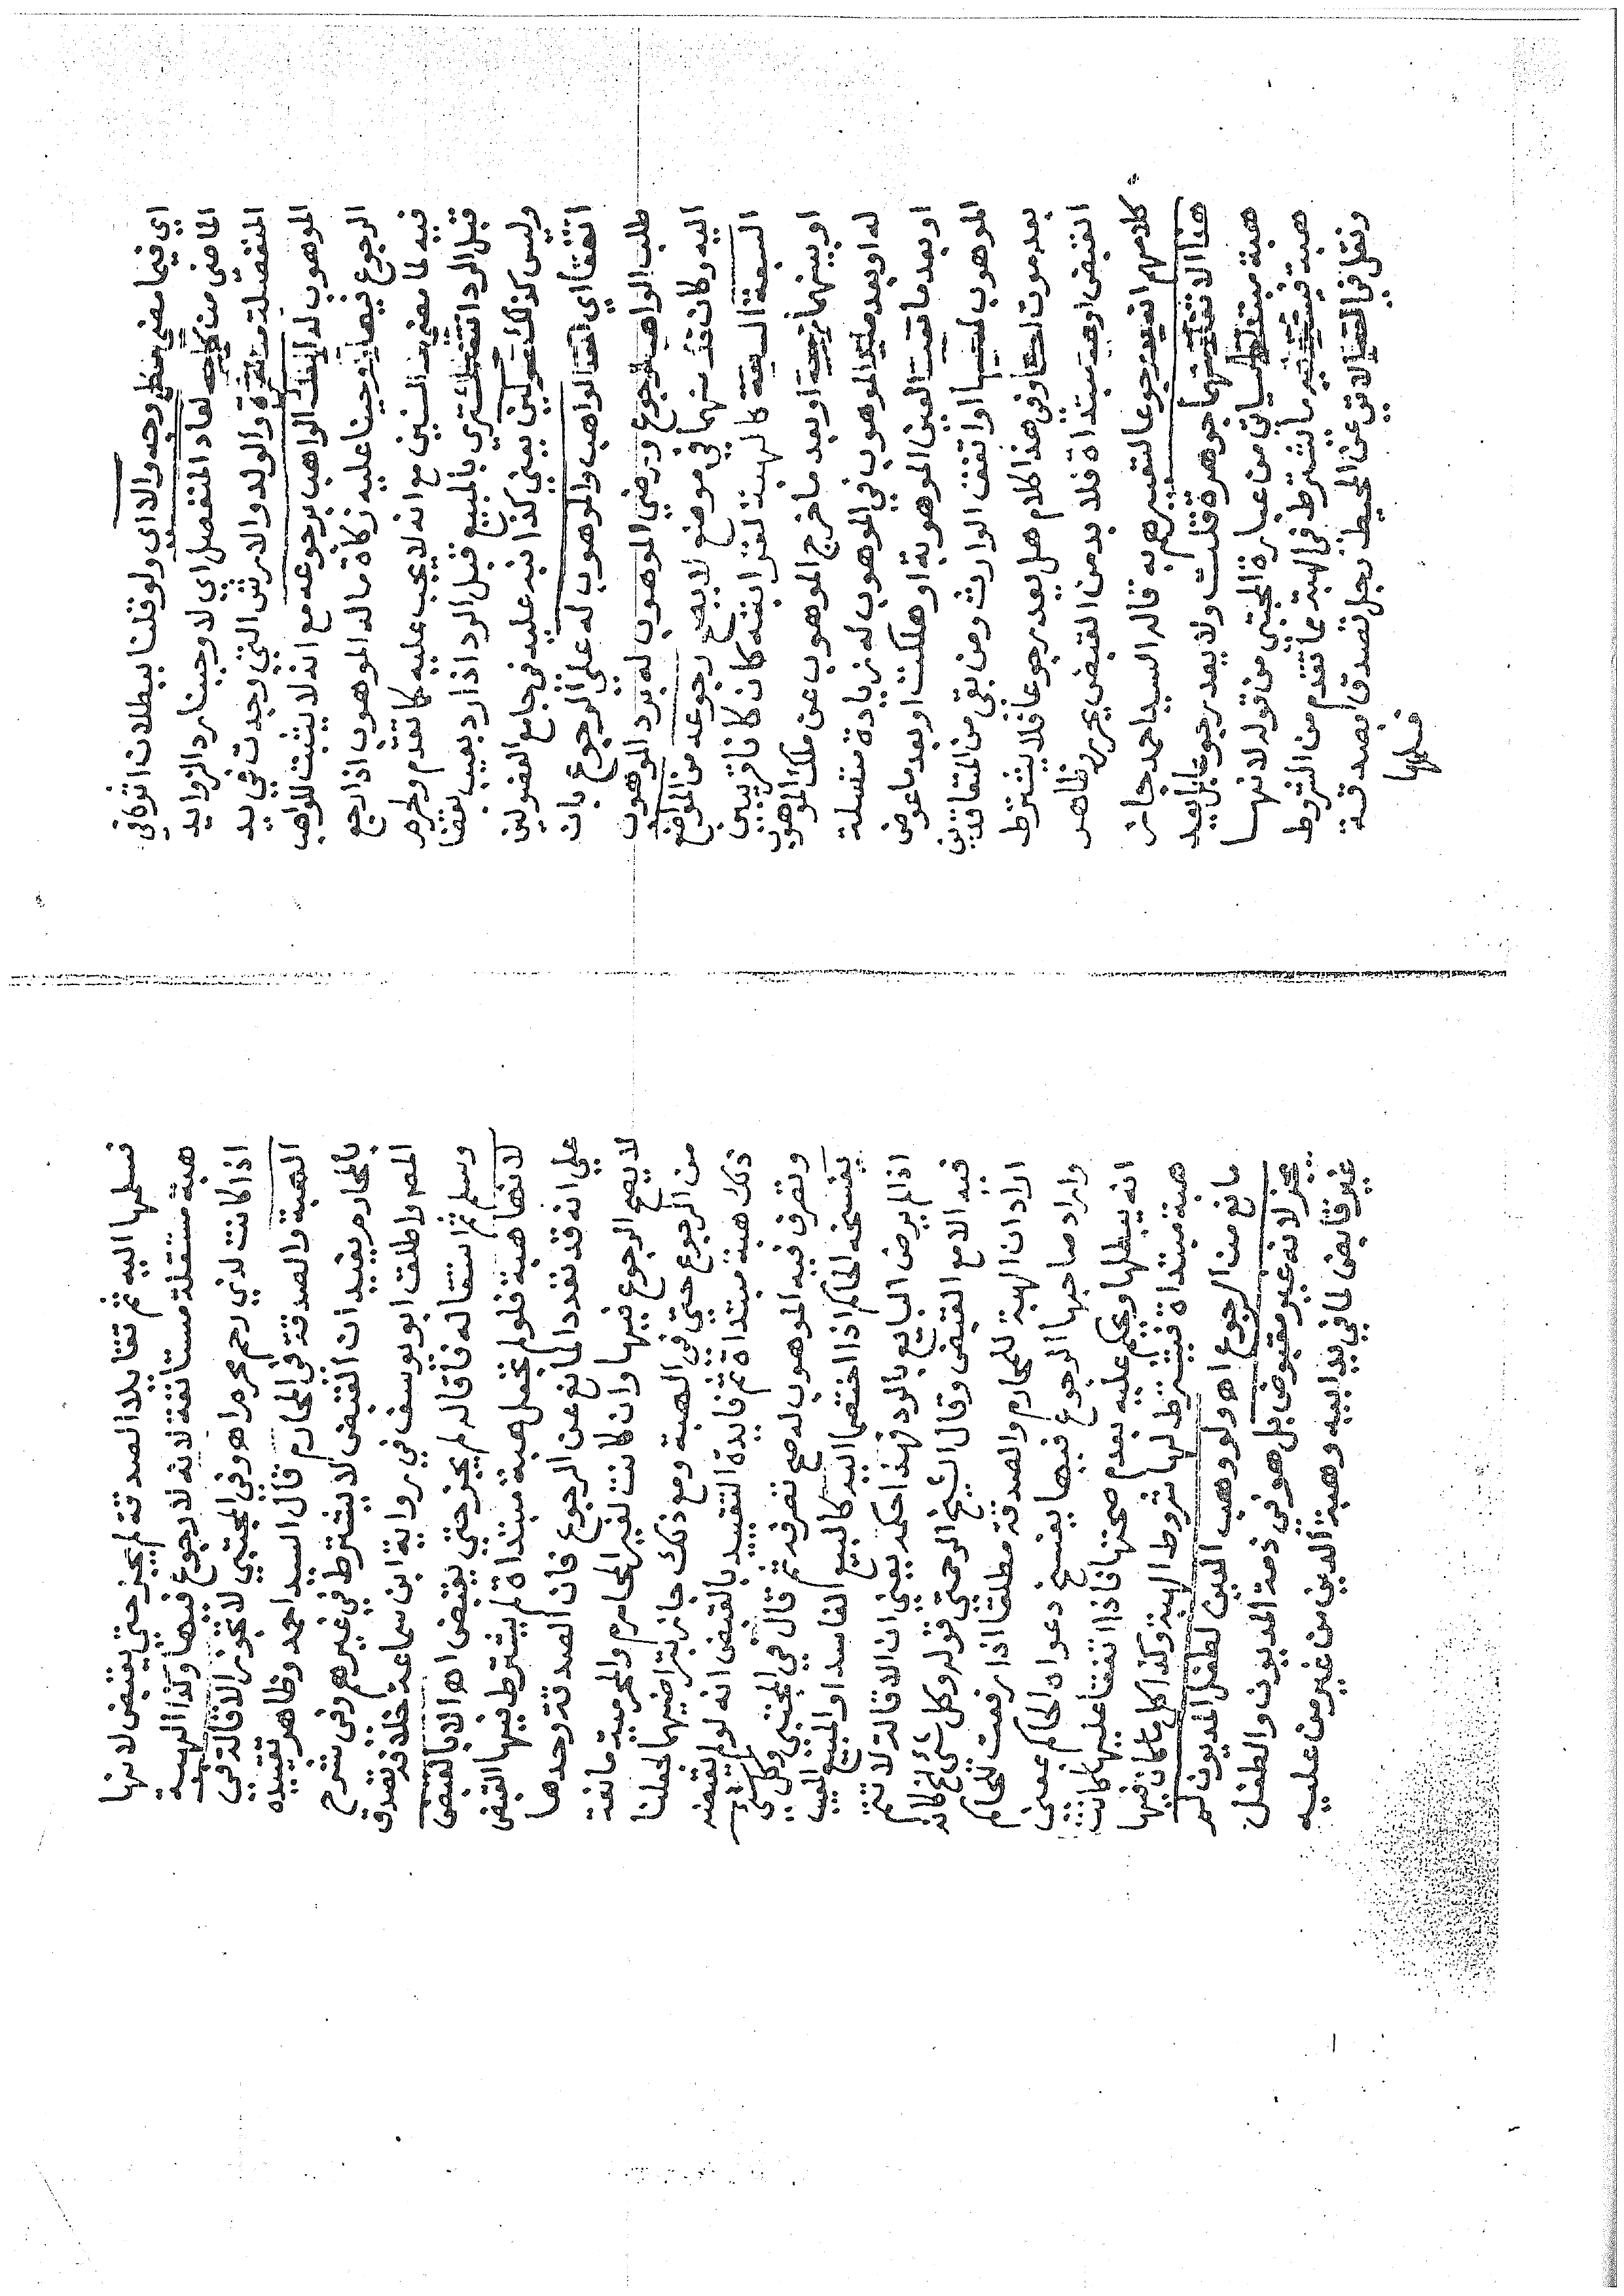 اي فيما مضي منظر وحه والا اي ولو قلنا ببطلان اثره في
الماضي من كل وجه لعاد المنفصل اي لا وجبنا رد الزوايد
المنفصلة من ثمرة والولد والارش التي وجدت في يد
الموهوب له الملك الواهب برجوعه مع انه لا يثبت للواهب
الرجوع فيها اوجبنا عليه زكاة مال الموهوب اذا رجع
فيه لما مضي من السنين مع انه لا يجب عليه كما تقدم وحرم
قبل الرد انتفع المشتري بالمبيع قبل الرد اذا رد بعيب بقضا
وليس كذلك فصولين يعني كذا نبه عليه في جامع الفصولين
اتفقا اي الواهب والموهوب له علي الرجوع بان
طلب الواهب الرجوع ورضي الموهوب له برد الموهوب
اليه وكان ذلك منهما في موضع لا يصح رجوعه من المواضع
السبعة السابقة كالهبة لقرابته كان كانا قريبين
او بينهما زوجية او بعد ما خرج الموهوب عن ملك الموهوب
له او بعد ما زيد الموهوب في الموهوب له زيادة متصلة
او بعد ما تلفت العين الموهوبة او هلكت او بعد ما عوض
الموهوب او اتفقت الوارث ومن بقي من المتعاقدين
بعد موت احدهما وفي هذا كلام هل يعد رجوعا فلا يشترط
القبض او هبة مبتداة فلا بد من القبض يحرر وظاهر
كلامهم انه يعد رجوعا لتعبيرهم به قاله السيد احمد جاز
هذا الاتفاق منهما جوهرة قلت ولا يعد رجوعا بل يعد
هبة مبتداة لما سياتي من عبارة المجتبي من قوله لانها
هبة فيشترط فيه ما اشترط في الهبة مما تقدم من الشروط
ونقل في الاتي عن المحيط رجل تصدق بصدقة
فسلمها
فسلمها اليه ثم تقايلا الصدقة لم يجز حتي يقبض لانها
هبة مستقلة مستانفة لانه لا رجوع فيها وكذا الهبة
اذا كانت لذي رحم محرم اهـ وفي المجتبي لا تجوز الاقالة في
الهبة والصدقة في المحارم قال السيد احمد وظاهر تقييده
بالمحارم يفيد ان القبض لا يشترط في غيرهم وفي شرح
المص واطلقت ابو يوسف في رواية ابن سماعة خلافه تصدق
وسلم ثم استقاله فاقاله لم يجز حتي يقبض اهـ الا بالقبض
لانها هبة فلو لم تجعل هبة مبتداة لم يشترط فيها القبض
علي انه قد تعدد المانع عن الرجوع فان الصدقة وحدها
لا يصح الرجوع فيها وان كانت لغير المحارم والمحرمية مانعة
من الرجوع حتي في الهبة ومع ذلك جاز بتراضيهما لجعلنا
ذلك هبة مبتداة ثم فايدة التقييد بالقبض انه لو لم يقبضه
وتصرف فيه الموهوب له صح تصرفه ثم قال في المجتبي وكل شي
يفسخه الحاكم اذا اختصما اليه كالبيع الفاسد او المبيع المعيب
اذا لم يرض البايع بالرد فهذا حكمه يعني ان الاقالة لا تتم
فيه الا مع القبض وقال الشيخ الرحمتي قوله وكل شي الخ كانه
اراد ان الهبة للمحارم والصدقة مطلقا اذا رفعت للحاكم
واراد صاحبها الرجوع فيها يفسخ دعواه الحاكم بمعني
انه يبطلها ويحكم عليه بعدم صحتها فاذا اتفقا عليها كانت
هبة مبتداة فيشترط لها شروط الهبة وكذا كل ما كان فيها
مانع من الرجوع اهـ ولو وهب الدين لطفل المديون لم
يجز لانه غير مقبوض بل هو في ذمة المديون والطفل
غير قابض لما في يد ابيه وهبة الدين من غير من عليه